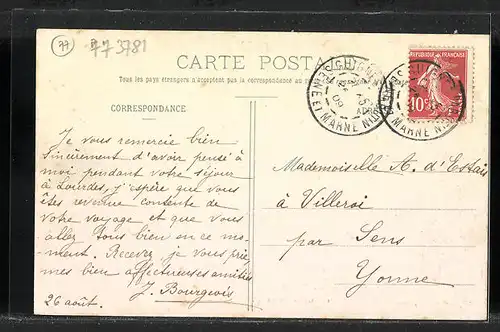 77
773781
CARTE POSTALE
Tous les pays étrangers n'acceptent pas la correspondance au
CORRESPONDANCE
SEINE ET MARNE
09
SEINE ET MARNE
10
Je vous remercie bien
sincèrement d'avoir pensé à
moi pendant votre séjour
à Lourdes, j'espère que vous
êtes revenue contente de
votre voyage et que vous
allez tous bien en ce mo-
ment. Recevez, je vous prie,
mes bien affectueuses amitiés
J. Bourgeois
26 août.
Mademoiselle A. d'Estais
à Villeroi
par Sens
Yonne